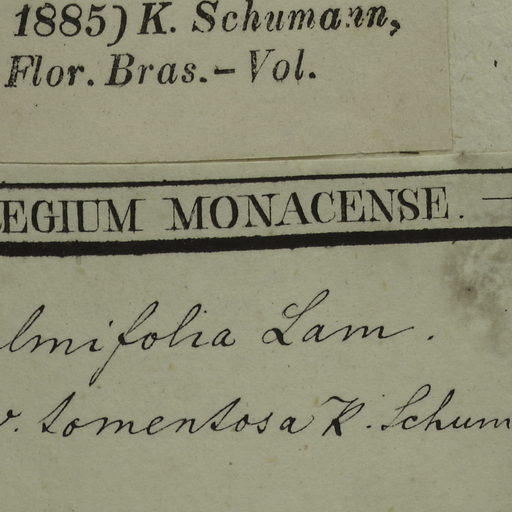 1885) K. Schumann,
Flor. Bras. – Vol.
EGIUM MONACENSE.
lmifolia Lam.
v. tomentosa K. Schum